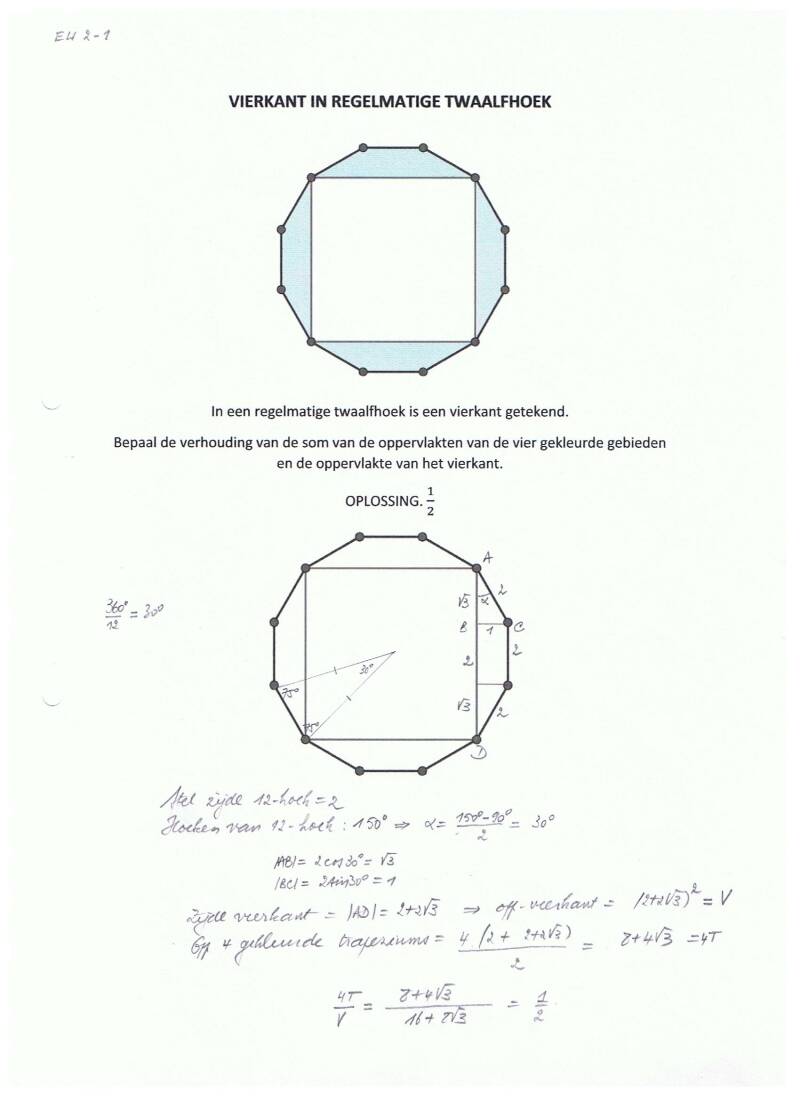 EH 2-1
VIERKANT IN REGELMATIGE TWAALFHOEK
In een regelmatige twaalfhoek is een vierkant getekend.
Bepaal de verhouding van de som van de oppervlakten van de vier gekleurde gebieden
en de oppervlakte van het vierkant.
OPLOSSING. 1/2
360°/12 = 30°
A
2
√3 α
B 1 C
2 2
√3 2
D
30°
75°
75°
Stel zijde 12-hoek = 2
Hoeken van 12-hoek : 150° ⇒ α = (150°-90°)/2 = 30°
|AB| = 2cos30° = √3
|BC| = 2sin30° = 1
Zijde vierkant = |AD| = 2+2√3 ⇒ opp-vierkant = (2+2√3)² = V
Opp 4 gekleurde trapeziums = 4 (2 + 2+2√3)/2 = 8+4√3 = 4T
4T/V = (8+4√3)/(16+8√3) = 1/2